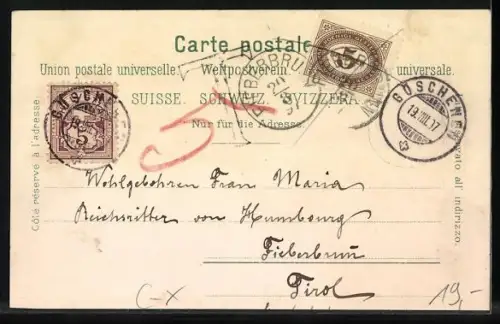 Carte postale.
Union postale universelle. Weltpostverein. universale.
SUISSE. SCHWEIZ. SVIZZERA.
Nur für die Adresse.
Côté réservé à l'adresse.
all' indirizzo.
GÖSCHENEN
GÖSCHENEN
19.VIII.
T
5
5
5
Wohlgebohren Frau Maria
Reichsritter von Hummbourg
Fieberbrunn
Tirol
C-X
19,-